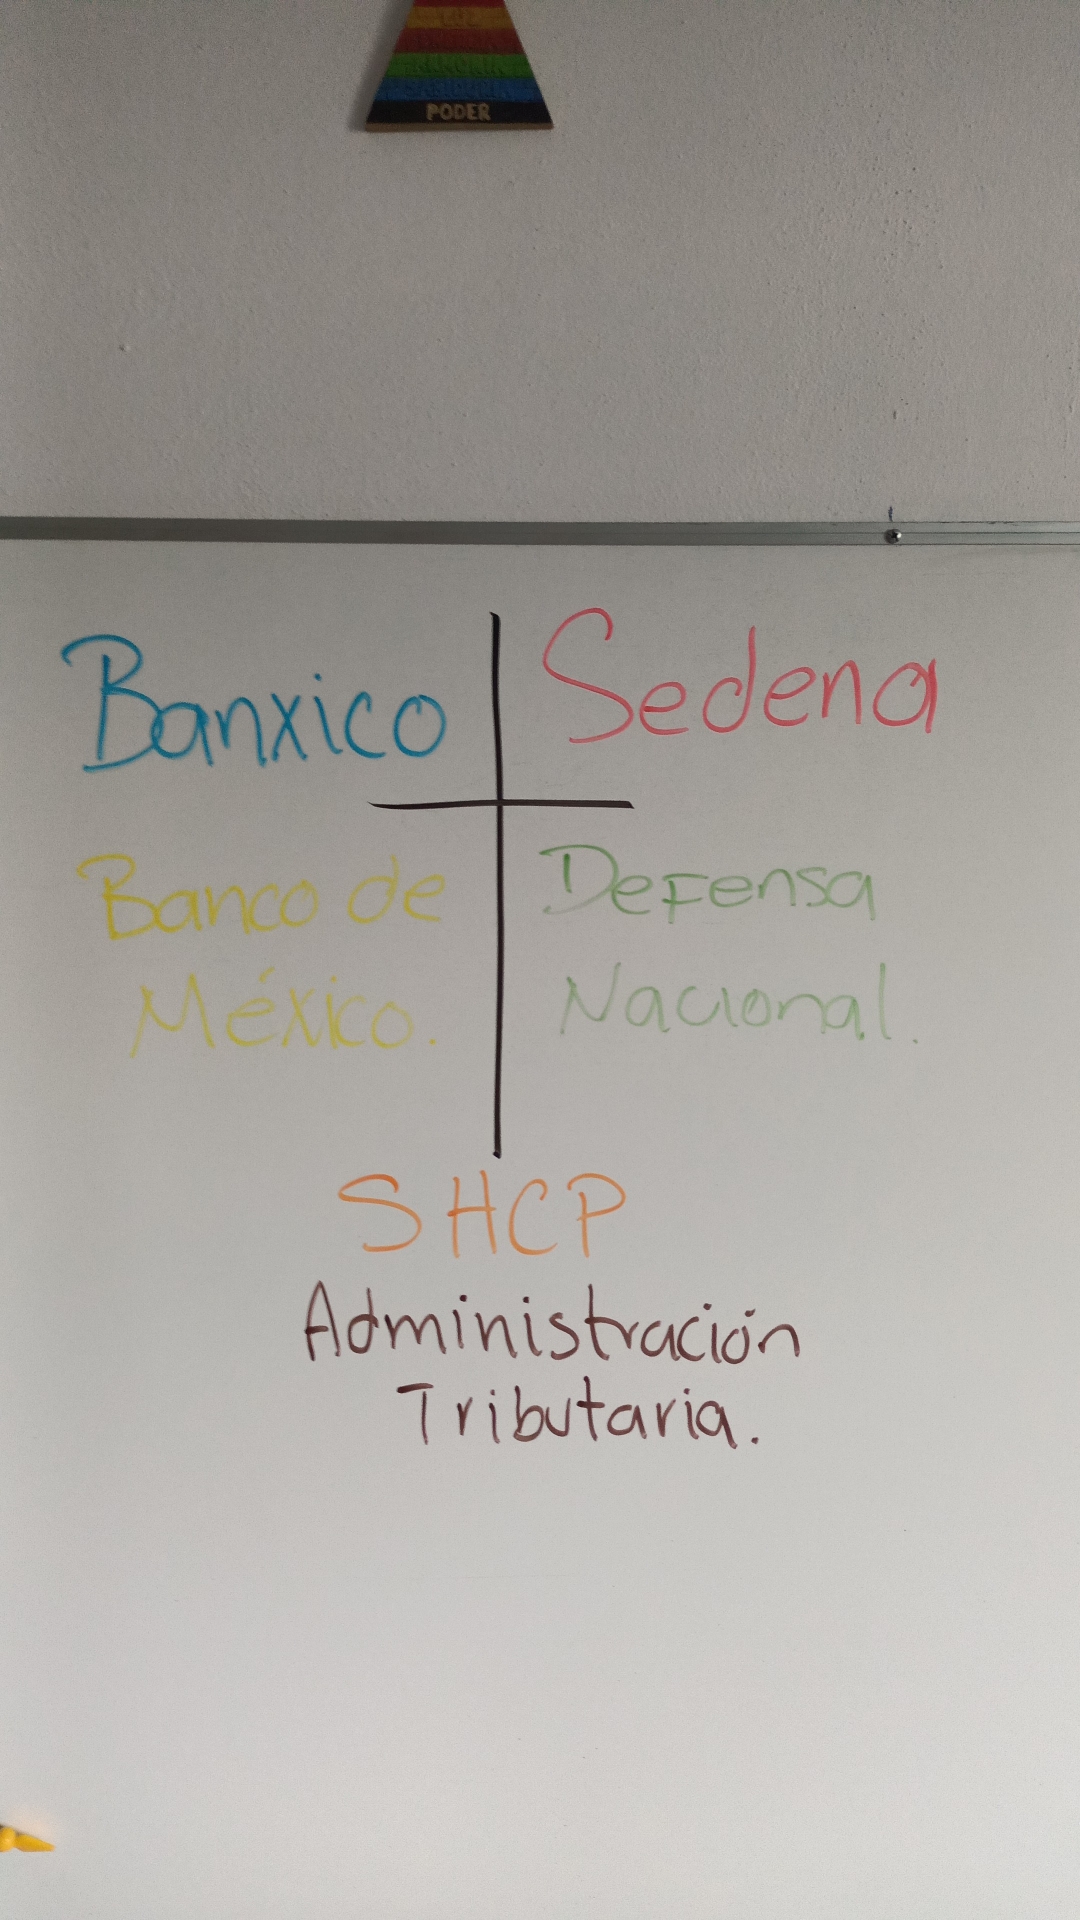 PODER
Banxico
Banco de
México.
Sedena
Defensa
Nacional.
SHCP
Administración
Tributaria.